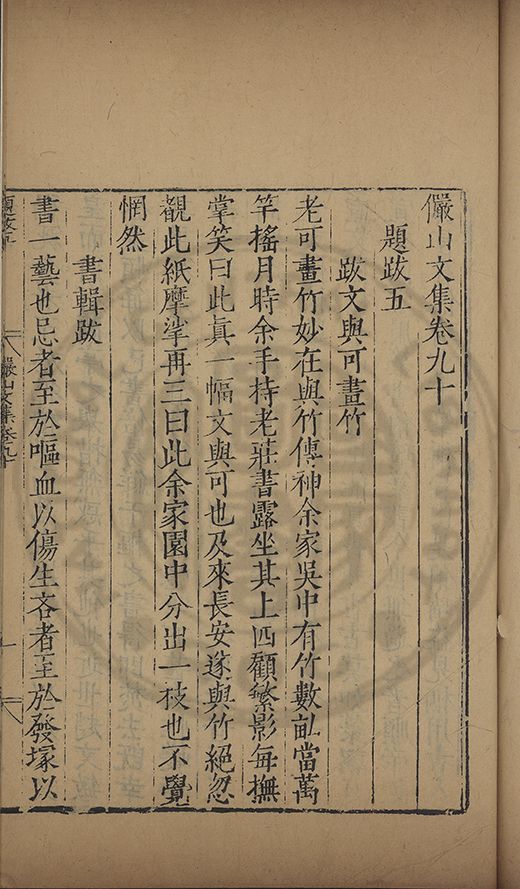 儼山文集卷九十
題跋五
跋文與可畫竹
老可畫竹妙在與竹傳神余家吳中有竹數畝當萬
竿搖月時余手持老莊書露坐其上四顧繁影每撫
掌笑曰此真一幅文與可也及來長安遂與竹絕忽
觀此紙摩挲再三曰此余家園中分出一枝也不覺
惘然
書輯跋
書一藝也忌者至於嘔血以傷生吝者至於發塚以